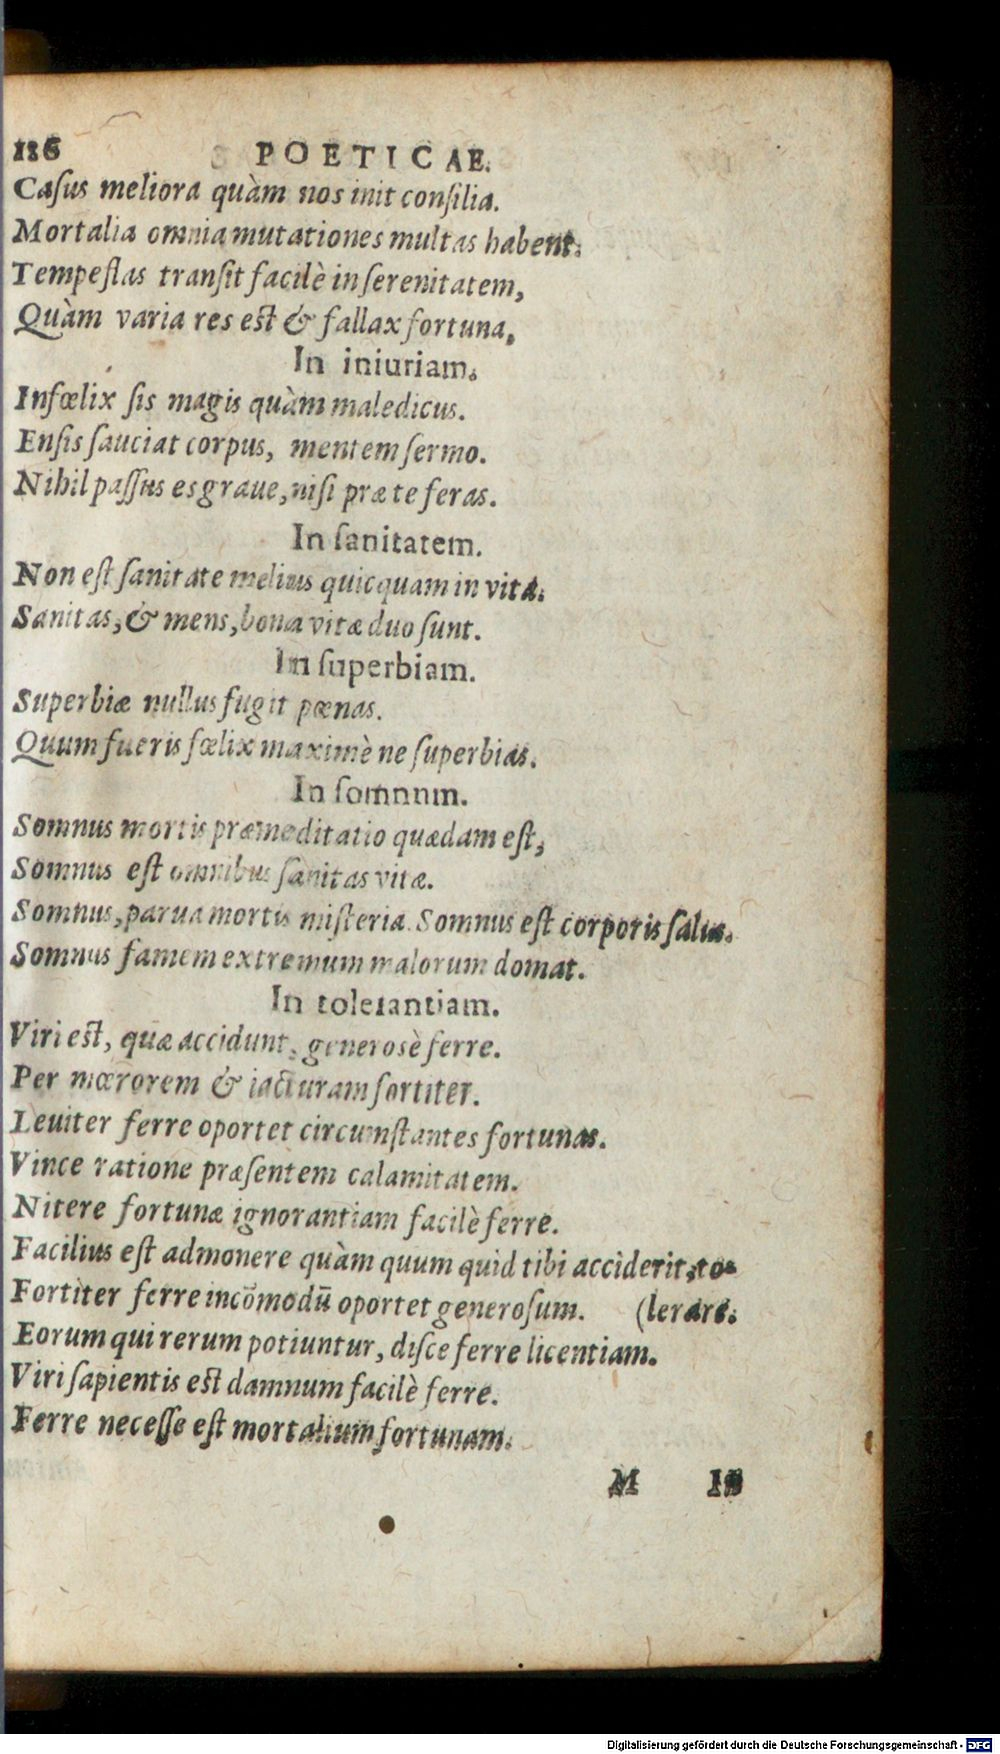 186 POETICAE.
Caſus meliora quàm nos init conſilia.
Mortalia omnia mutationes multas habent.
Tempeſtas tranſit facilè in ſerenitatem,
Quàm varia res eſt & fallax fortuna.
In iniuriam.
Infœlix ſis magis quàm maledicus.
Enſis ſauciat corpus, mentem ſermo.
Nihil paſſus es graue, niſi præ te feras.
In ſanitatem.
Non eſt ſanitate melius quicquam in vita.
Sanitas, & mens, bona vitæ duo ſunt.
In ſuperbiam.
Superbiæ nullus fugit pœnas.
Quum fueris fœlix maximè ne ſuperbias.
In ſomnum.
Somnus mortis præmeditatio quædam eſt,
Somnus eſt omnibus ſanitas vitæ.
Somnus, parua mortis miſteria. Somnus eſt corporis ſalus.
Somnus famem extremum malorum domat.
In tolerantiam.
Viri eſt, quæ accidunt, generosè ferre.
Per mœrorem & iacturam fortiter.
Leuiter ferre oportet circumſtantes fortunas.
Vince ratione præſentem calamitatem.
Nitere fortunæ ignorantiam facilè ferre.
Facilius eſt admonere quàm quum quid tibi acciderit, to-
Fortiter ferre incōmodū oportet generoſum. (lerare.
Eorum qui rerum potiuntur, diſce ferre licentiam.
Viri ſapientis eſt damnum facilè ferre.
Ferre neceſſe eſt mortalium fortunam.
M
Digitalisierung gefördert durch die Deutsche Forschungsgemeinschaft - DFG